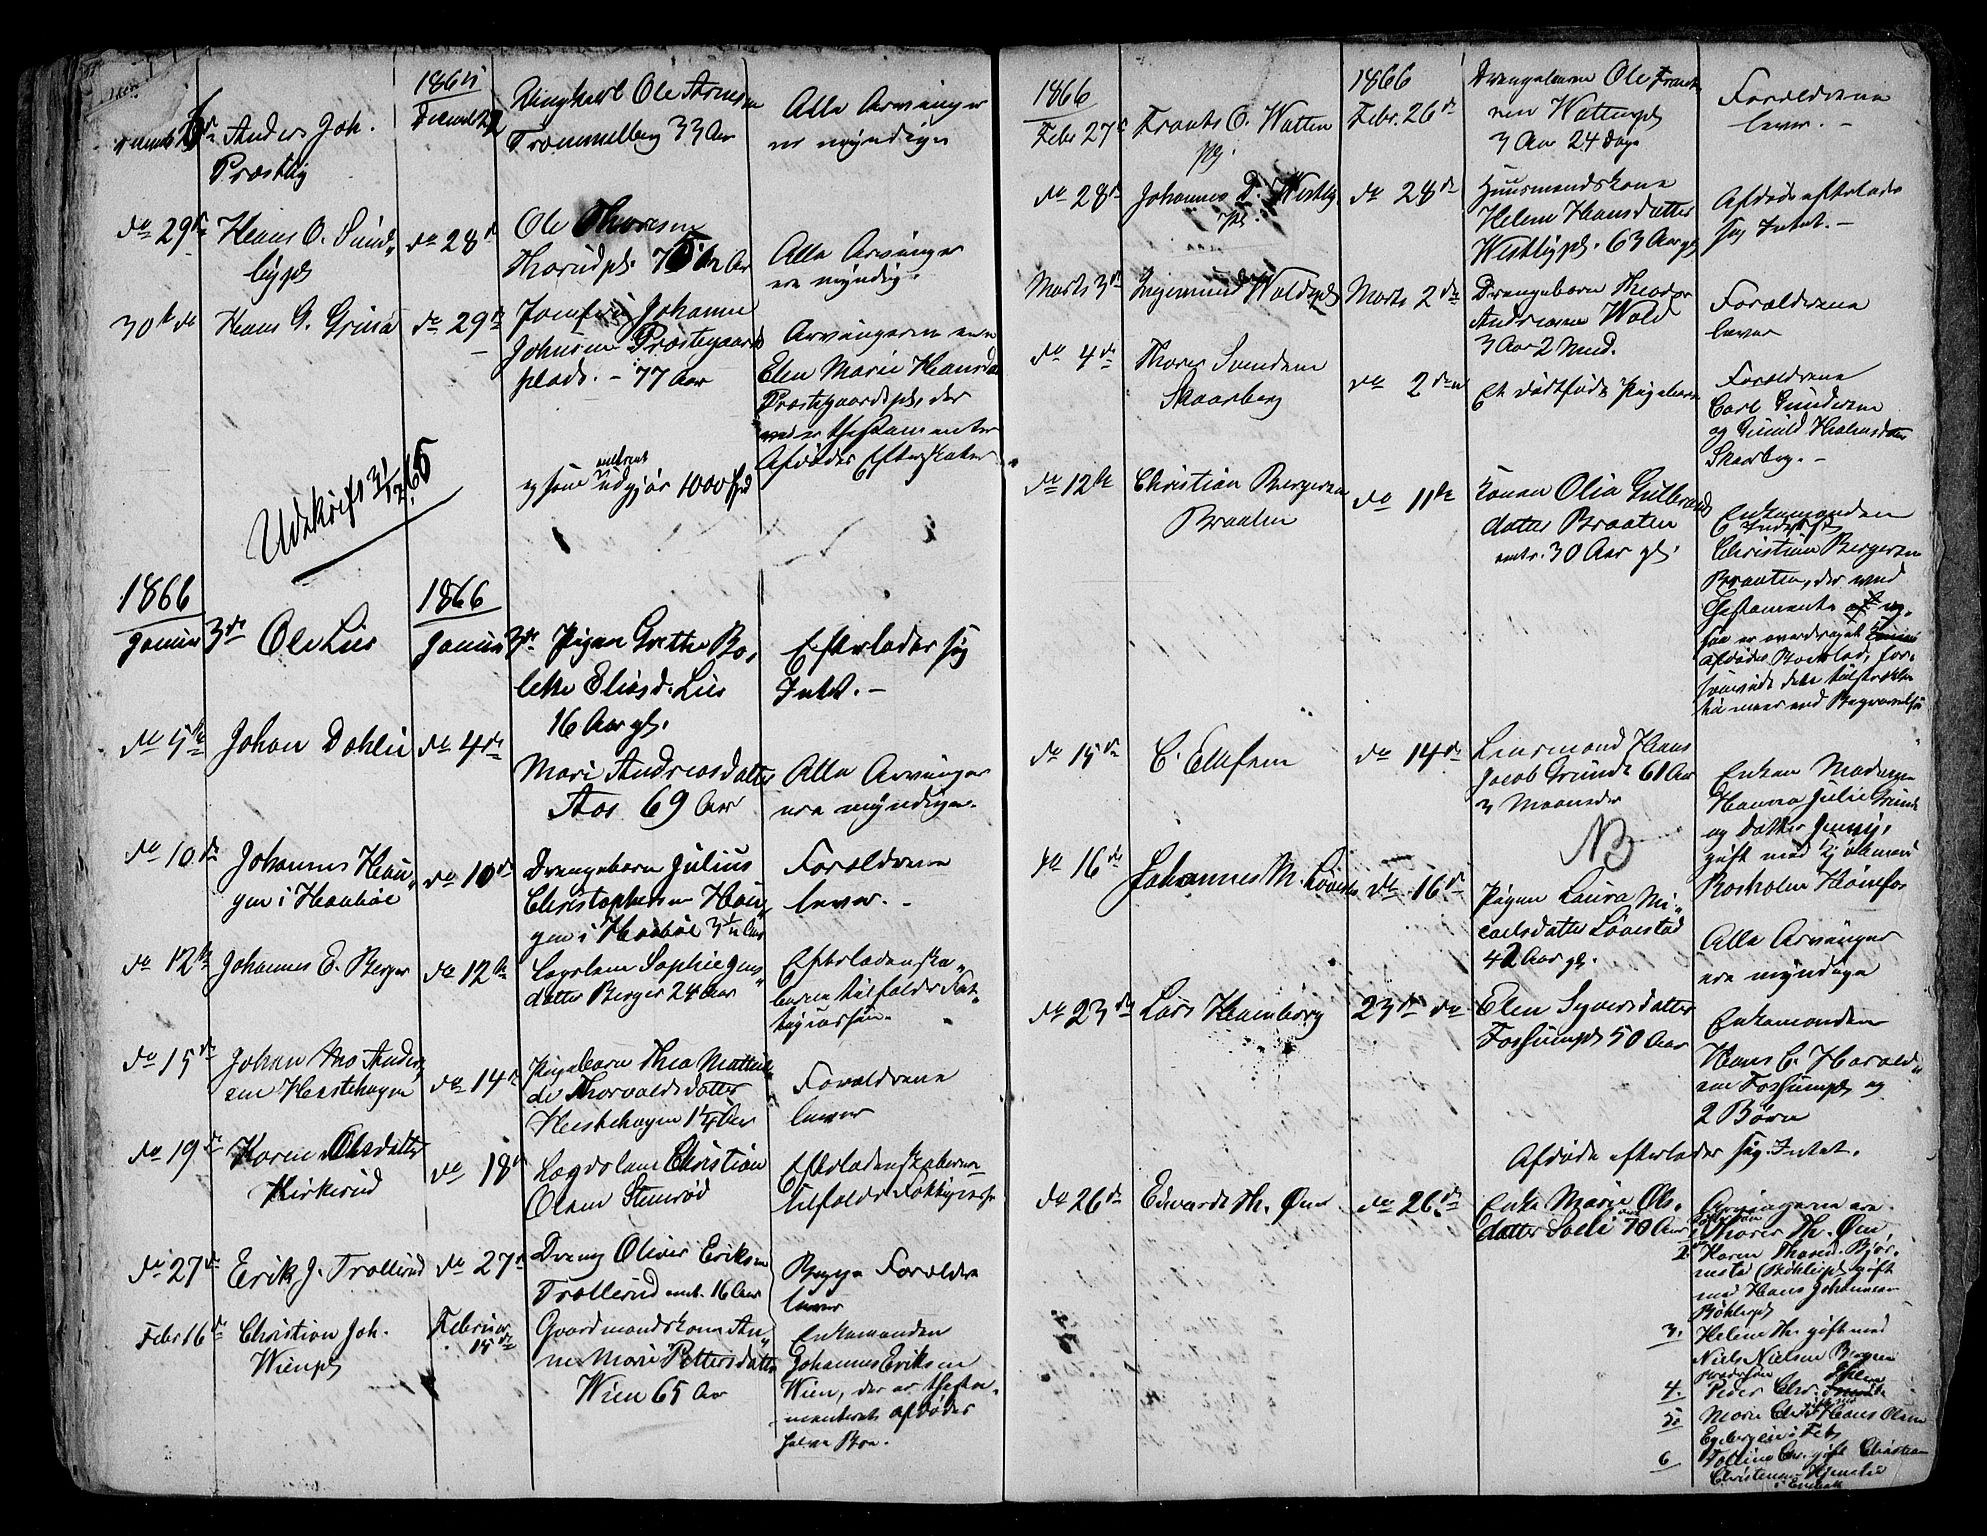 Anders Joh.
Præstbÿ
1865
Decembr 22
Ungkarl Ole Arnesen
Trømmelberg 33 Aar
Alle Arvinger
er myndige
do 29de
Hans O. Sund„
bypl
do 28d
Ole Thoresen
Thorudpl. Aar
Alle Arvinger
ere myndig.
30te do
Hans G. Grina
do 29d
Jomfru Johanne
Johnsen Præstegaards
plads. – 77 Aar
Arvingerne ere
Elen Marie Hansd.
Præstegaardspl. der
ved Thestamente
Afdødes Efterskaber
omtrent
som udgjør 1000 Spd
Udskrift 31/12 65
1866
Januar 3de
Ole Lies
1866
Januar 3de
Pigen Grethe Bo„
lette Eliasd. Lies
16 Aar gl.
Efterlader sig
Intet. –
do 5te
Johan Dahlie
do 4de
Mari Andreasdatter
Aas 69 Aar
Alle Arvinger
ere myndige.
do 10de
Johannes Hau„
gen i Haubøe
do 10d
Drengebarn Julius
Christophersen Hau„
gen i Haubøe 3 1/2 Aar
Forældrene
lever. –
do 12te
Johannes E. Berger
do 12te
Lægslem Sophie Jens„
datter Berger 24 Aar
Efterladenska„
berne tilfalder Fat„
tigcassen.
do 15de
Johan Mo Anders„
sen Hestehagen
do 14d
Pigebarn Thea Mathil„
de Thorvaldsdatter
Hestehagen 1 1/4 Aar
Forældrene
lever
do 19de
Karen Olesdatter
Kirkerud
do 18d
Lægslem Christian
Olsen Stenrød
Efterladenskaberne
tilfalder Fattigcassen
do 27d
Erik J. Trøllerud
do 27d
Dreng Oliver Eriksen
Trøllerud 16 Aar
Begge Forældre
lever
Febr 16de
Christian Joh.
Wienpl
Februar
15de
Gaardmandskone An„
ne Marie Pettersdatter
Wien 65 Aar
Enkemanden
Johannes Eriksen
Wien, der er Thesta„
menteret afdødes
halve Boe.
1866
Febr 27d
Frants O. Watten
pl.
1866
Febr. 26d
Drengebarn Ole Frant
sen Wattenpl
3 Aar 24 Dage
Forældrene
lever. –
do 28d
Johannes D. Westby
pl.
do 28de
Huusmandskone
Helene Hansdatter
Westbypl. 63 Aar gl
Afdøde efterlader
sig Intet. –
Marts 3d
Ingemund Woldspl
Marts 2den
Drengebarn Theodor
Andreasen Wold
3 Aar 2 Mnd.
Forældrene
lever
do 4de
Thores Svendsen
Skaarberg
do 2den
Et dødfødt Pigebarn
Forældrene
Carl Gundersen
og Gunild Halvorsdatter
Skaarberg. –
do 12te
Christian Bergersen
Braaten
do 11te
Konen Olia Gulbrands
datter Braaten
omtr. 30 Aar gl.
Enkemanden
Christian Bergersen
Braaten, der ved
Thestamente
er overdraget
afdødes Boeslod, for„
saavidt dette
mere end Begravelse
do 15de
C. Ellefsen
do 14de
Lensmand Hans
Jacob Grundt 61 Aar
3 Maaneder
NB
Enken Madame
Hanna Julie Grundt
og datter Jenny,
gift med
Rosholm Hønefos
do 16de
Johannes M. Løvestad
do 16d
Pigen Laura Mi„
caelsdatter Løvestad
42 Aar gl.
Alle Arvinger
ere myndige
do 23de
Lars Hamborg
23de do
Elen Syversdatter
Fossumpl 50 Aar
Enkemanden
Hans C. Harald„
sen Fossumpl og
2 Børn
Afdøde efterlader sig Intet.
do 26de
Edvardt Th. Øen
do 26de
Enke Marie Ols„
datter Solie 70 Aar
Arvingerne ere
1 Thores Th. Øen,
2 Karen Thoresd. Bjør„
Bøhlerpl gift
med Hans Johannesen
Bøhlerpl
3. Helene Th. gift med
Niels Nielsen Bergen
4. Peder Chr.
5. Marie Chr. Hans Olsen
6 Chr. gift Christian
Christensen